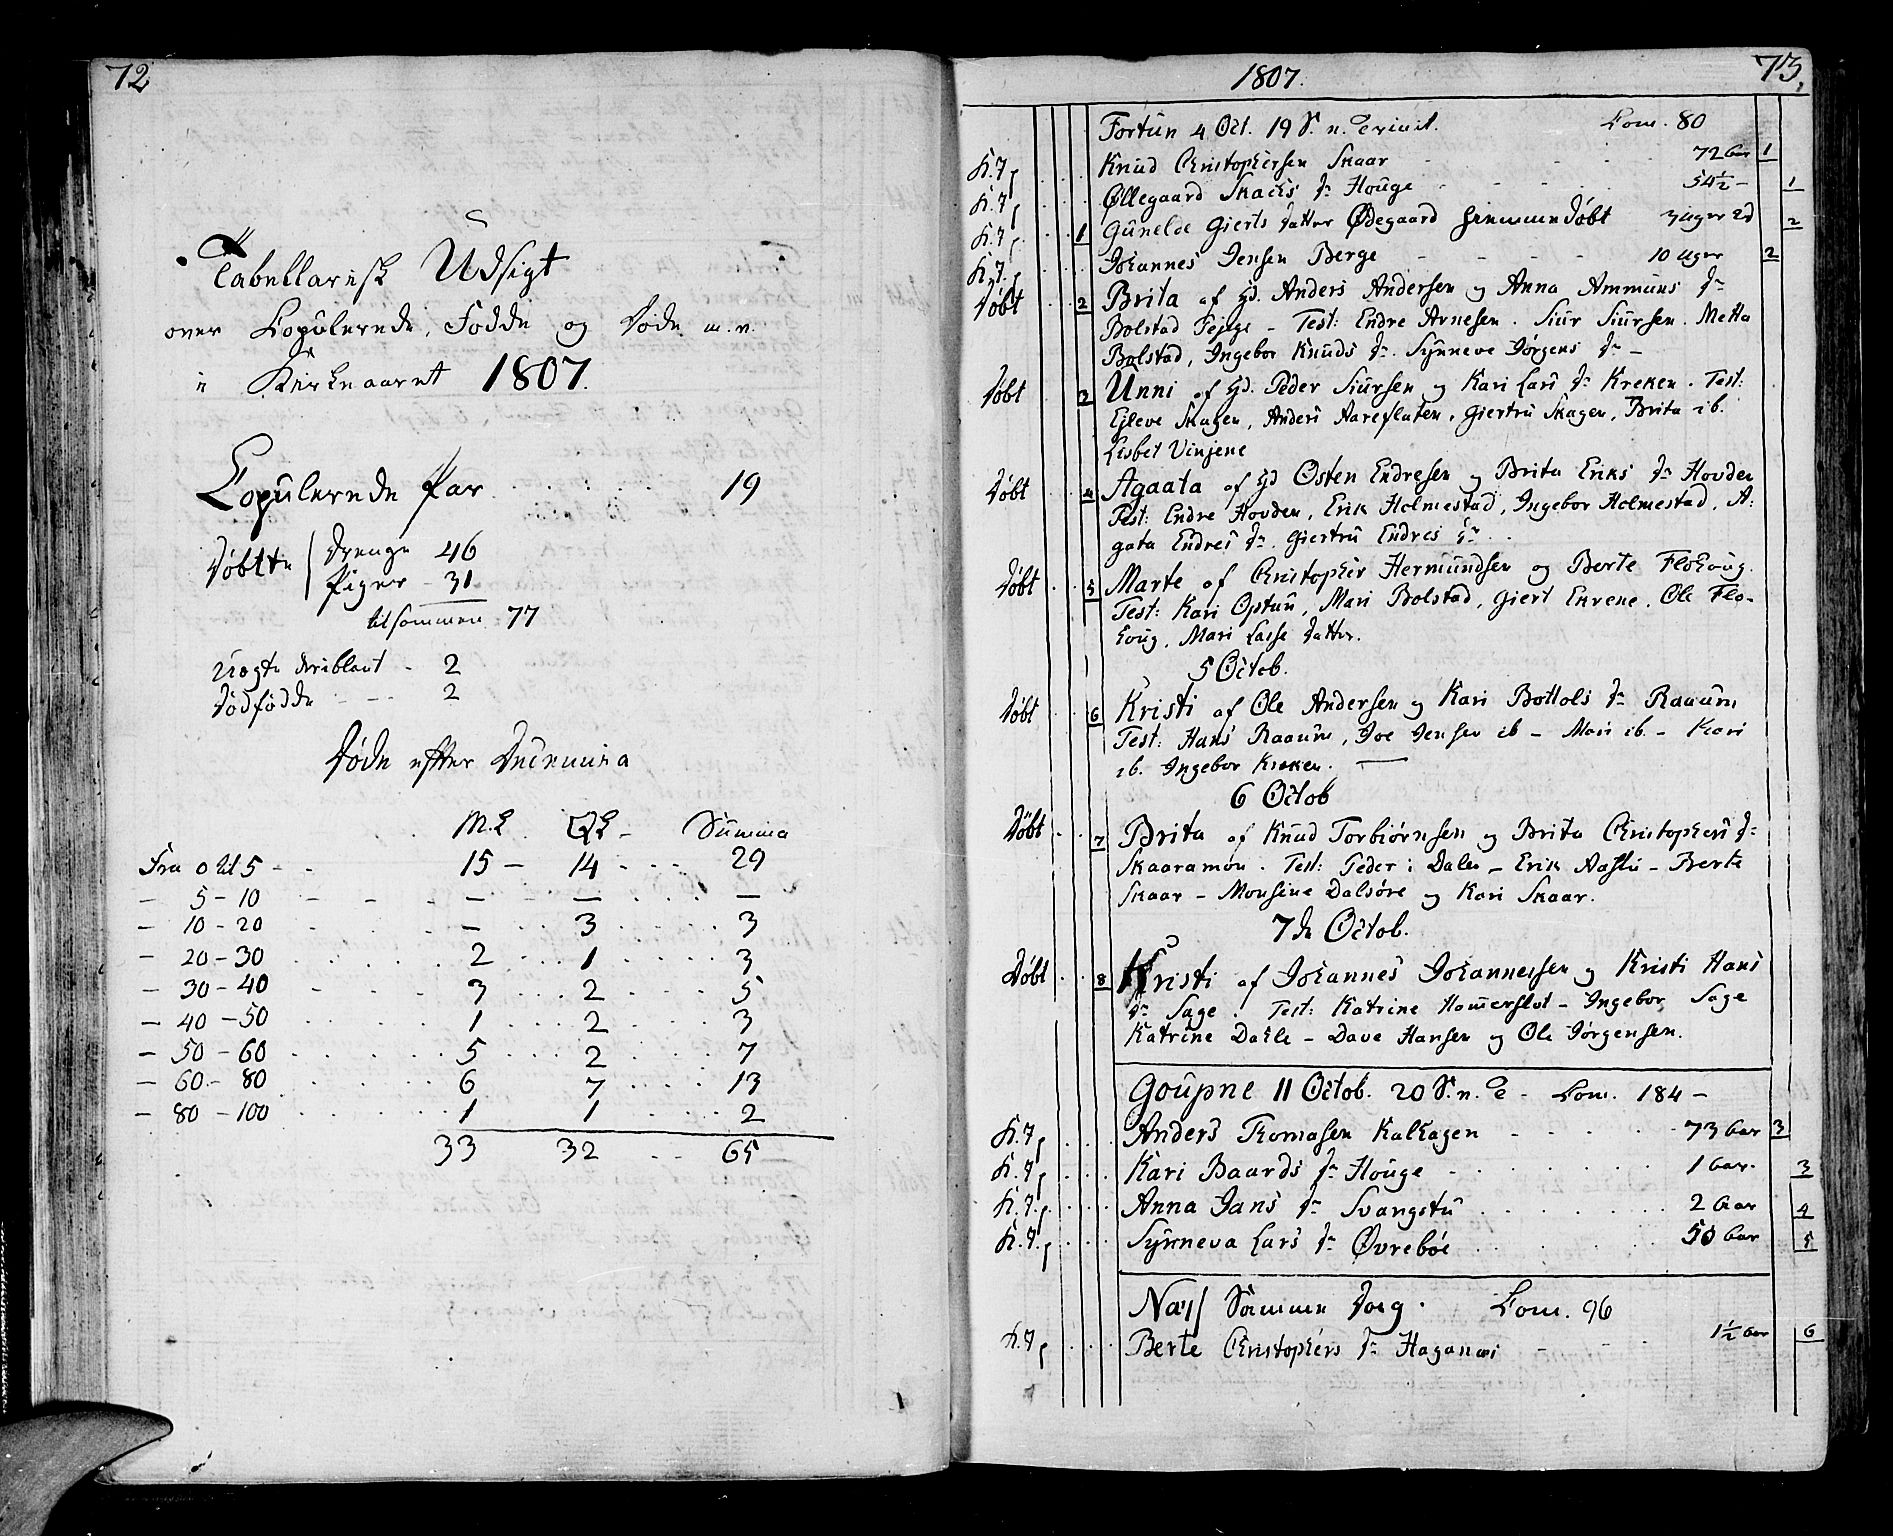 72
Tabellarisk Udsigt
over Copulerede, Fødde og Døde m.v.
i Kirkeaaret 1807.
Copulerede Par . . . . . . 19
Døbte Drenge 46
Piger - 31
tilsammen 77
Uægte iblant - 2
Dødfødde - - - 2
Døde efter Decennia
M.K. QK - Summa
Fra 0 til 5 - - 15 - 14 . . . 29
- 5 - 10 - - - - — — . . . —
- 10 - 20 . . . — 3 . . . . 3
- 20 - 30 . . . . . 2 . . . 1 . . . . 3
- 30 - 40 - . - . 3 . . . 2 . . . . 5
- 40 - 50 . . . . . 1 . . . 2 . . . . 3
- 50 - 60 . . . . . 5 . . . . 2 . . . . 7
- 60 - 80 . . . . . 6 7 . . . . 13
- 80 - 100 . . . . . . 1 1 . . . . 2
33 32 . . 65
1807. 73.
Fortun 4 Oct. 19 S. n. Trinit. Com. 80
K. 7 Knud Christophersen Skaar - - - - 72 Aar 1
K. 7 Øllegaard dr Houge - - - - 54½ - 1
K. 7 1 Gunelde Gierts Datter Ødegaard hiemmedøbt 3 uger 2d 2
K. 7 Johannes Jensen Berge - - - - 10 uger 2
Døbt 2 Brita af Gd. Anders Andersen og Anna Ammuns dr
Bolstad - Test: Endre Arnesen. Siur Siursen. Metta
Bolstad, Ingebor Knuds dr. Synneve Jørgens dr -
Døbt 3 Unni af Gd. Peder Siursen og Kari Lars dr Kreken. Test:
Ejleve Skagen, Anders Aareflaten, Giertru Skagen, Brita ib.
Lisbet Vinjene
Døbt 4 Agaata af Gd Osten Endresen og Brita Eriks dr Hovden
Test: Endre Hovden, Erik Holmestad, Ingebor Holmestad, A:
gata Endres dr. Giertru Endres dr. . .
Døbt 5 Marte af Christopher Hermundsen og Berte Flohoug.
Test: Kari Optun, Mari Bolstad, Giert Enrene, Ole Flo-
houg, Mari Lasse Datter.
5 Octob.
Døbt 6 Kristi af Ole Andersen og Kari Bottols dr Raaum
Test: Hans Raaum, Joe Jensen ib - Mari ib. - Kari
ib. Ingebor Kreken. —
6 Octob
Døbt 7 Brita af Knud Torbiørnsen og Brita Christophers dr
Skaaramoen. Test: Peder i Dalen - Erik - Berte
Skaar - Monsine Dalsøre og Kari Skaar.
7de Octob.
Døbt 8 Kristi af Johannes Johannessen og Kristi Hans
dr Sage. Test: Katrine Hamerslot - Ingebor Sage
Katrine Dahle - Dave Hansen og Ole Jørgensen.
Goupne 11 Octob. 20 S. n. T - Com. 184 -
K. 7 Anders Thomasen Kalhagen - - - - - 73 Aar 3
K. 7 Kari Baards dr Houge - . . . . . . 1 Aar. 3
K. 7 Anna Jans dr Svangstu . . . . . . . 2 Aar 4
K. 7 Synneva Lars dr Øvrebøe . . . . . . 50 Aar 5
Næs Samme Dag. Com. 96
K. 7 Berte Christophers dr Haganæs - - - 1½ Aar 6